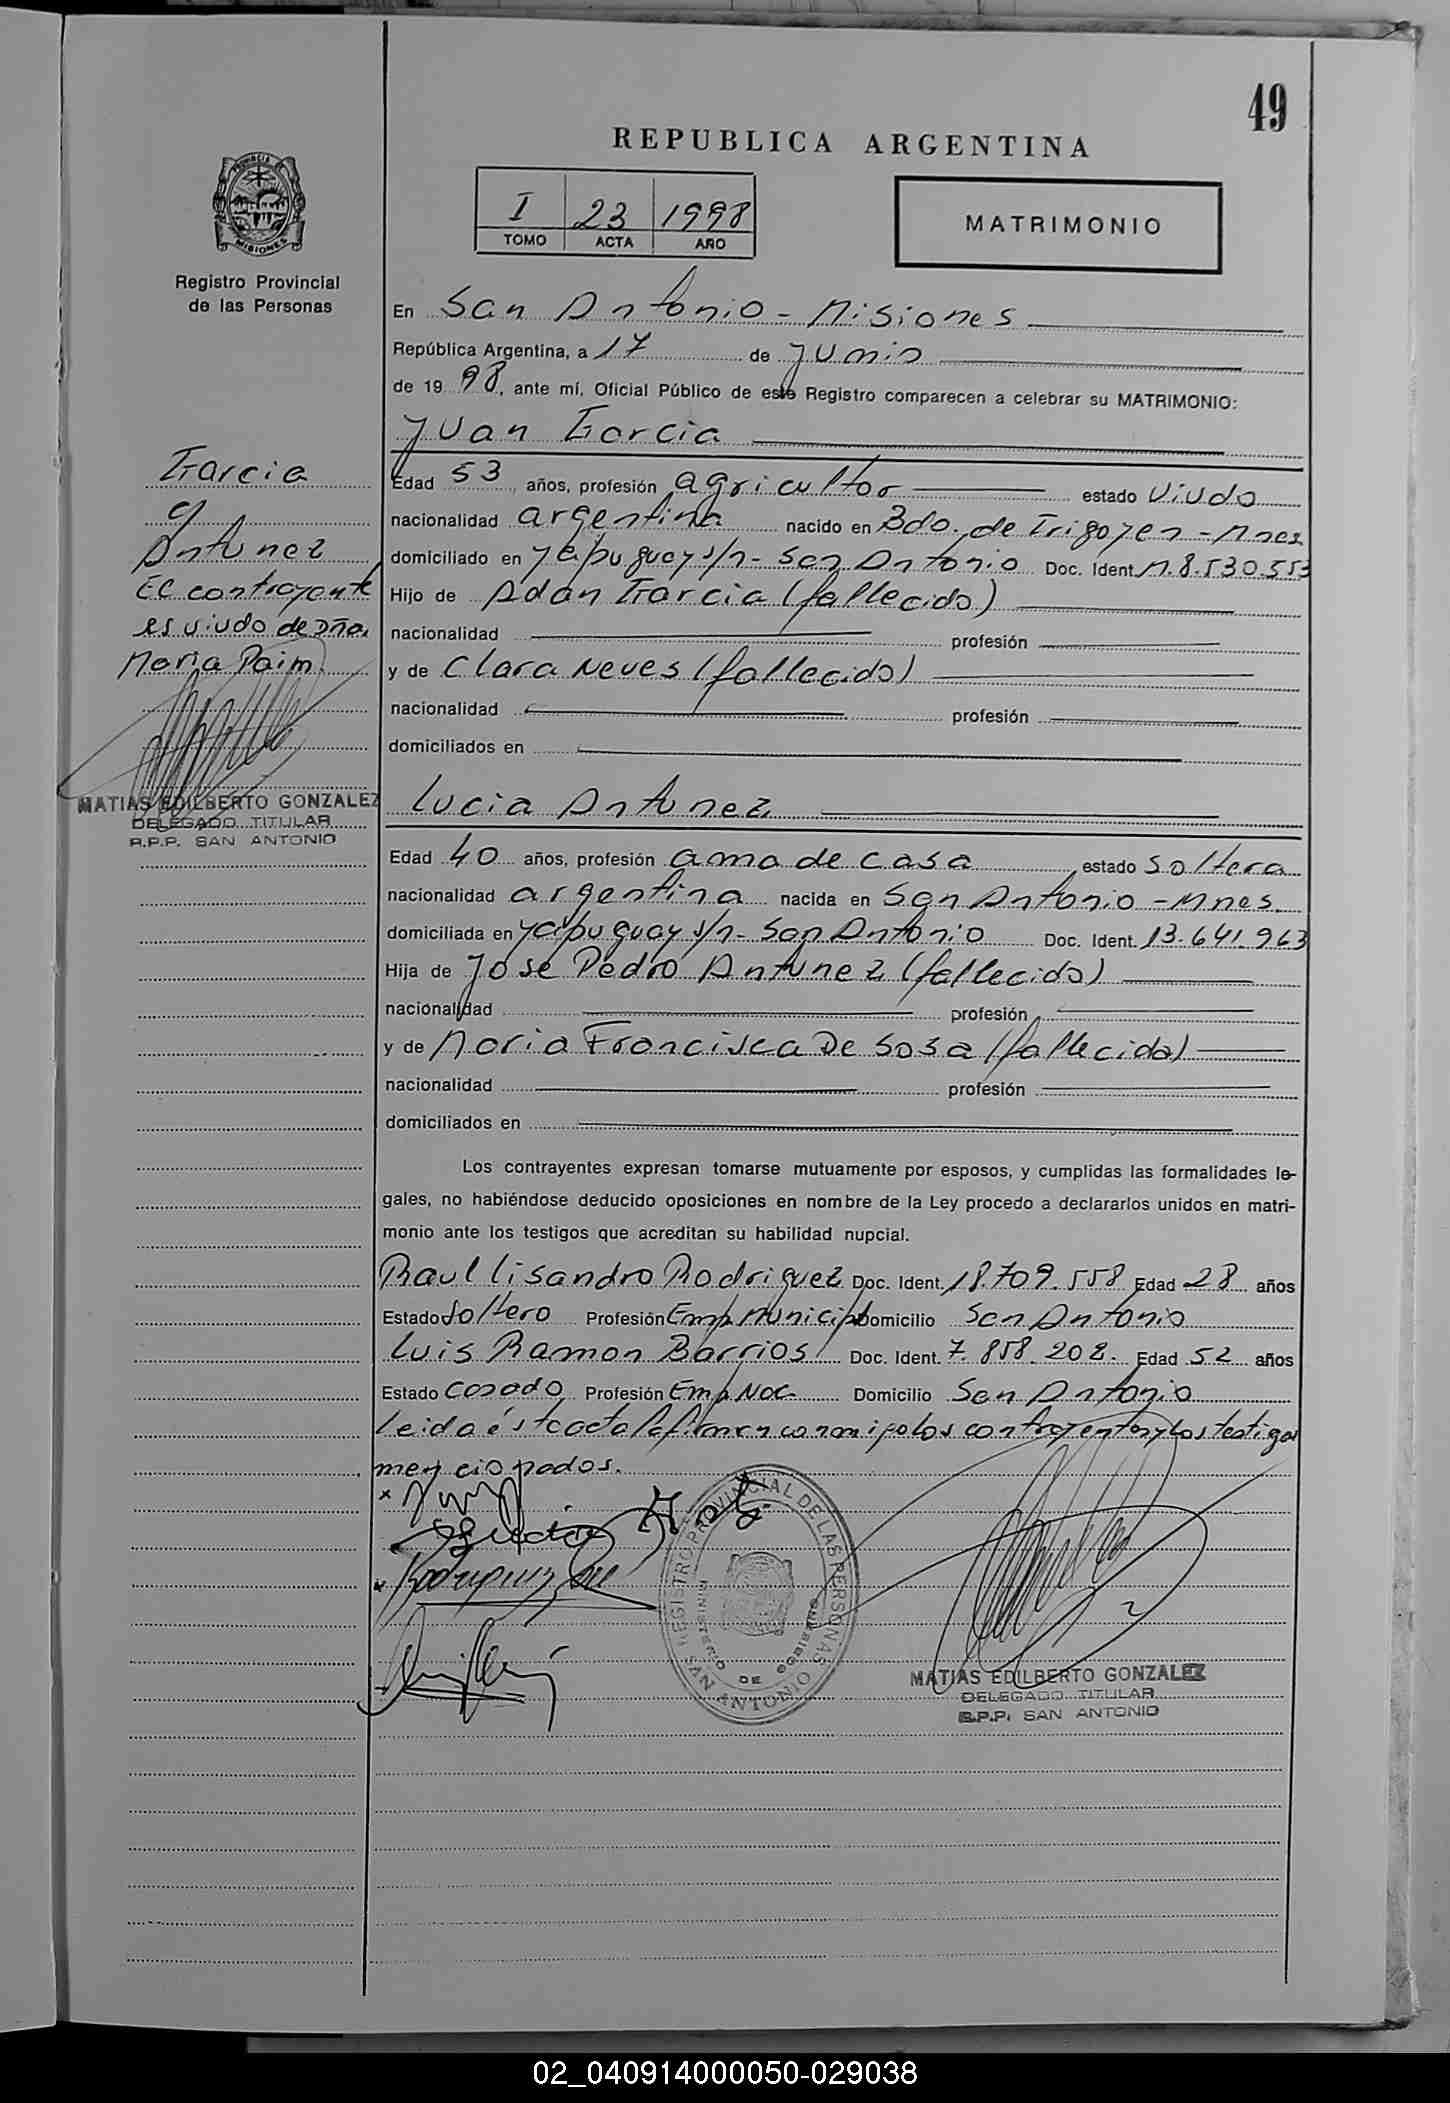 49
REPUBLICA ARGENTINA
I 23 1998
TOMO ACTA AÑO
MATRIMONIO
PROVINCIA DE
MISIONES
Registro Provincial
de las Personas
En San Antonio - Misiones
República Argentina, a 17 de Junio
de 1998, ante mí, Oficial Público de este Registro comparecen a celebrar su MATRIMONIO:
Juan Garcia
Garcia
c/
Antunez
El contrayente
es viudo de Dña.
Maria Paim.
MATIAS EDILBERTO GONZALEZ
DELEGADO TITULAR
R.P.P. SAN ANTONIO
Edad 53 años, profesión agricultor estado viudo
nacionalidad argentina nacido en Bdo. de Irigoyen - Mnes
domiciliado en Yapuguay s/n - San Antonio Doc. Ident. M. 8.530.553
Hijo de Adan Garcia (fallecido)
nacionalidad profesión
y de Clara Neves (fallecida)
nacionalidad profesión
domiciliados en
Lucia Antunez
Edad 40 años, profesión ama de casa estado soltera
nacionalidad argentina nacida en San Antonio - Mnes.
domiciliada en Yapuguay s/n - San Antonio Doc. Ident. 13.641.963
Hija de Jose Pedro Antunez (fallecido)
nacionalidad profesión
y de Maria Francisca De Sosa (fallecida)
nacionalidad profesión
domiciliados en
Los contrayentes expresan tomarse mutuamente por esposos, y cumplidas las formalidades le-
gales, no habiéndose deducido oposiciones en nombre de la Ley procedo a declararlos unidos en matri-
monio ante los testigos que acreditan su habilidad nupcial.
Raul Lisandro Rodriguez Doc. Ident. 18.709.558 Edad 28 años
Estado soltero Profesión Emp. Municip. Domicilio San Antonio
Luis Ramon Barrios Doc. Ident. 7.858.202. Edad 52 años
Estado casado Profesión Emp. Nac. Domicilio San Antonio
Leida ésta acta la firman conmigo los contrayentes y los testigos
mencionados.
REGISTRO PROVINCIAL DE LAS PERSONAS
MINISTERIO DE GOBIERNO
SAN ANTONIO
MATIAS EDILBERTO GONZALEZ
DELEGADO TITULAR
R.P.P. SAN ANTONIO
02_040914000050-029038